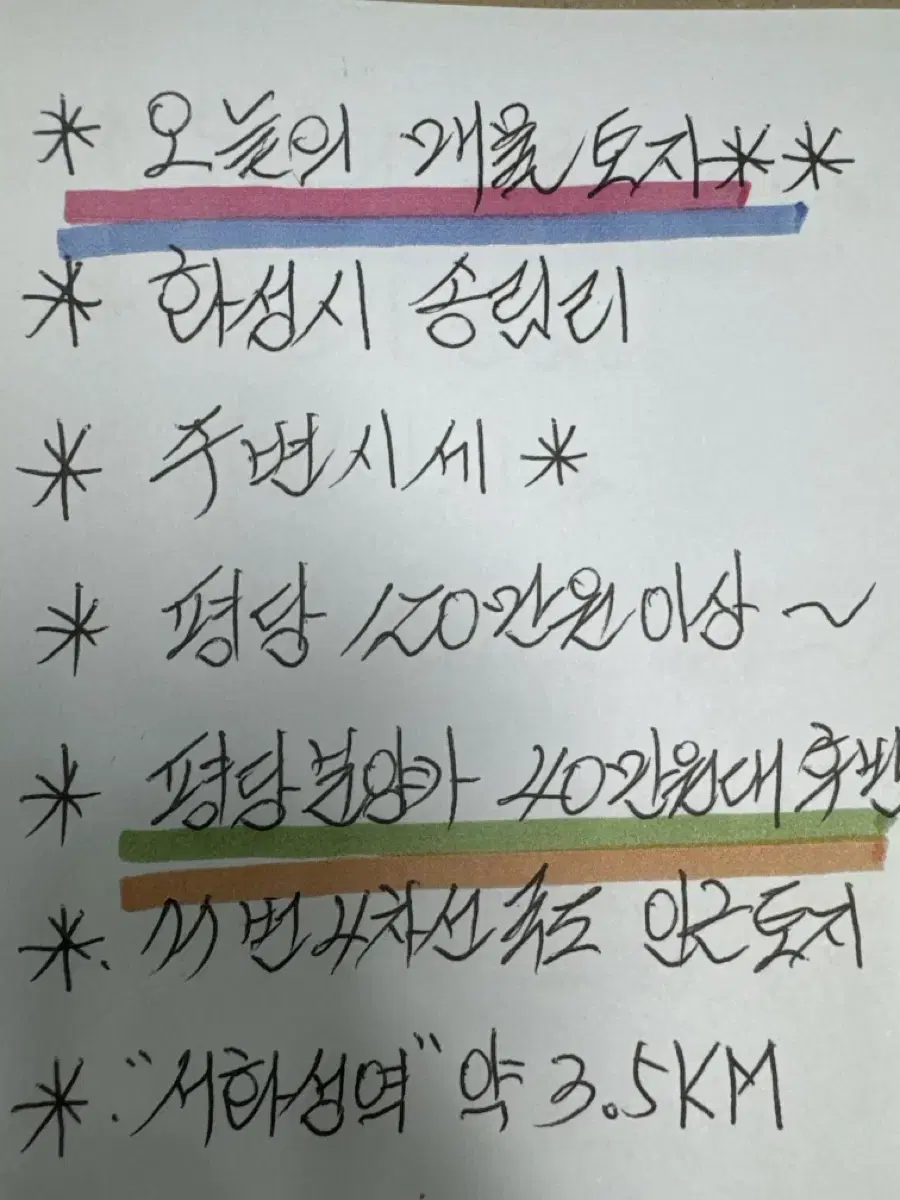 * 오늘의 개울 토지 * *
* 화성시 송림리
* 주변시세 *
* 평당 120만원이상 ~
* 평당분양가 40만원대 후반
*. 77번 4차선 국도 인근토지
*. "서화성역" 약 3.5KM